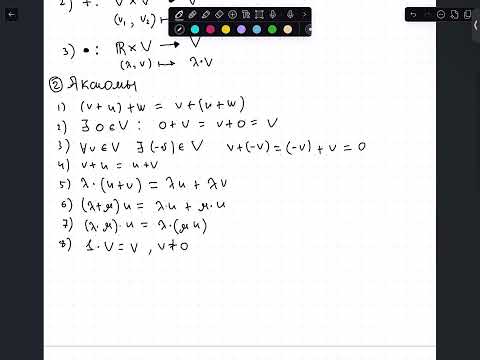 2) + : V × V → V
(v₁, v₂) ↦
3) • : ℝ × V → V
(λ, v) ↦ λ·v
② Аксиомы
1) (v+u)+w = v+(u+w)
2) ∃ 0 ∈ V : 0+v = v+0 = V
3) ∀v ∈ V ∃ (-v) ∈ V v+(-v) = (-v)+v = 0
4) v+u = u+v
5) λ·(u+v) = λu + λv
6) (λ+μ)u = λ·u + μ·u
7) (λ·μ)·u = λ·(μu)
8) 1·v = v, v≠0